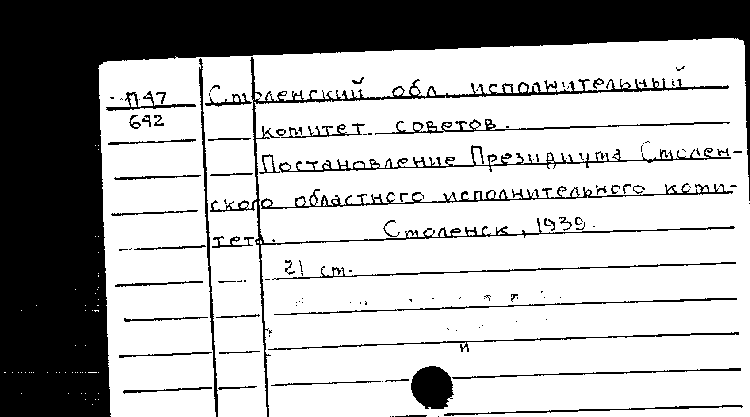 П47 Смоленский обл. исполнительный
642 комитет советов.
Постановление Президиума Смолен-
ского областного исполнительного коми-
тета. Смоленск, 1939.
21 ст.
и